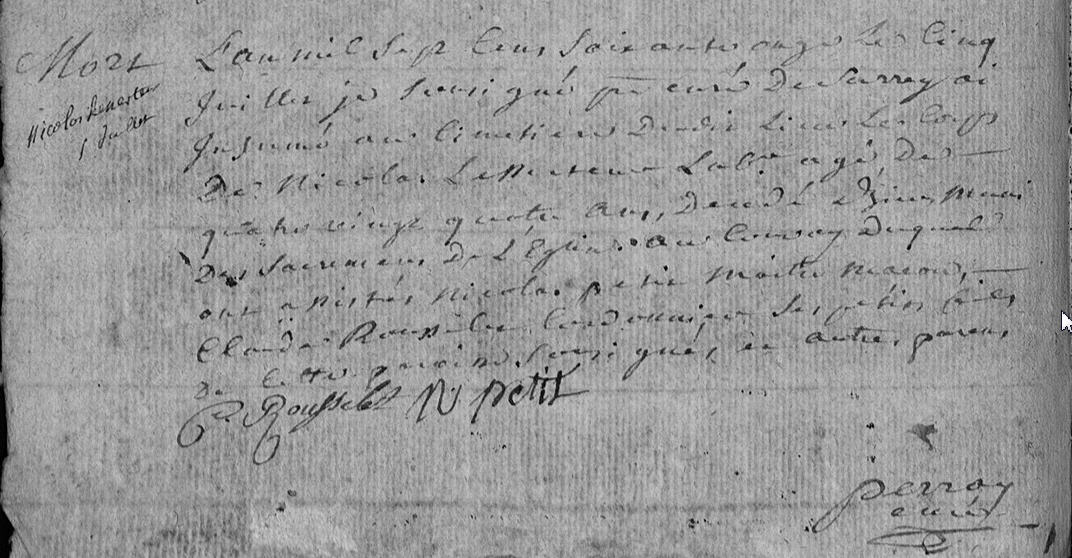 Mort
Nicolas
5 Juillet
L'an mil Sept Cens Soixante onze le Cinq
Juillet je Soussigné ptre curé De Serrey ai
Inhumé au Cimetiere Dudit Lieu Le Corps
De Nicolas Labr agé De
quatre vingt quatre ans, Decedé Muni
Des Sacremens De L'Eglise. au Convoy Duquel
ont assistés Nicolas petit Maitre Macon,
Claude Rousselet Cordonnier Ses petits fils
De Cette paroisse Soussignés, et autres parens
C. Rousselet N petit
perroy
curé